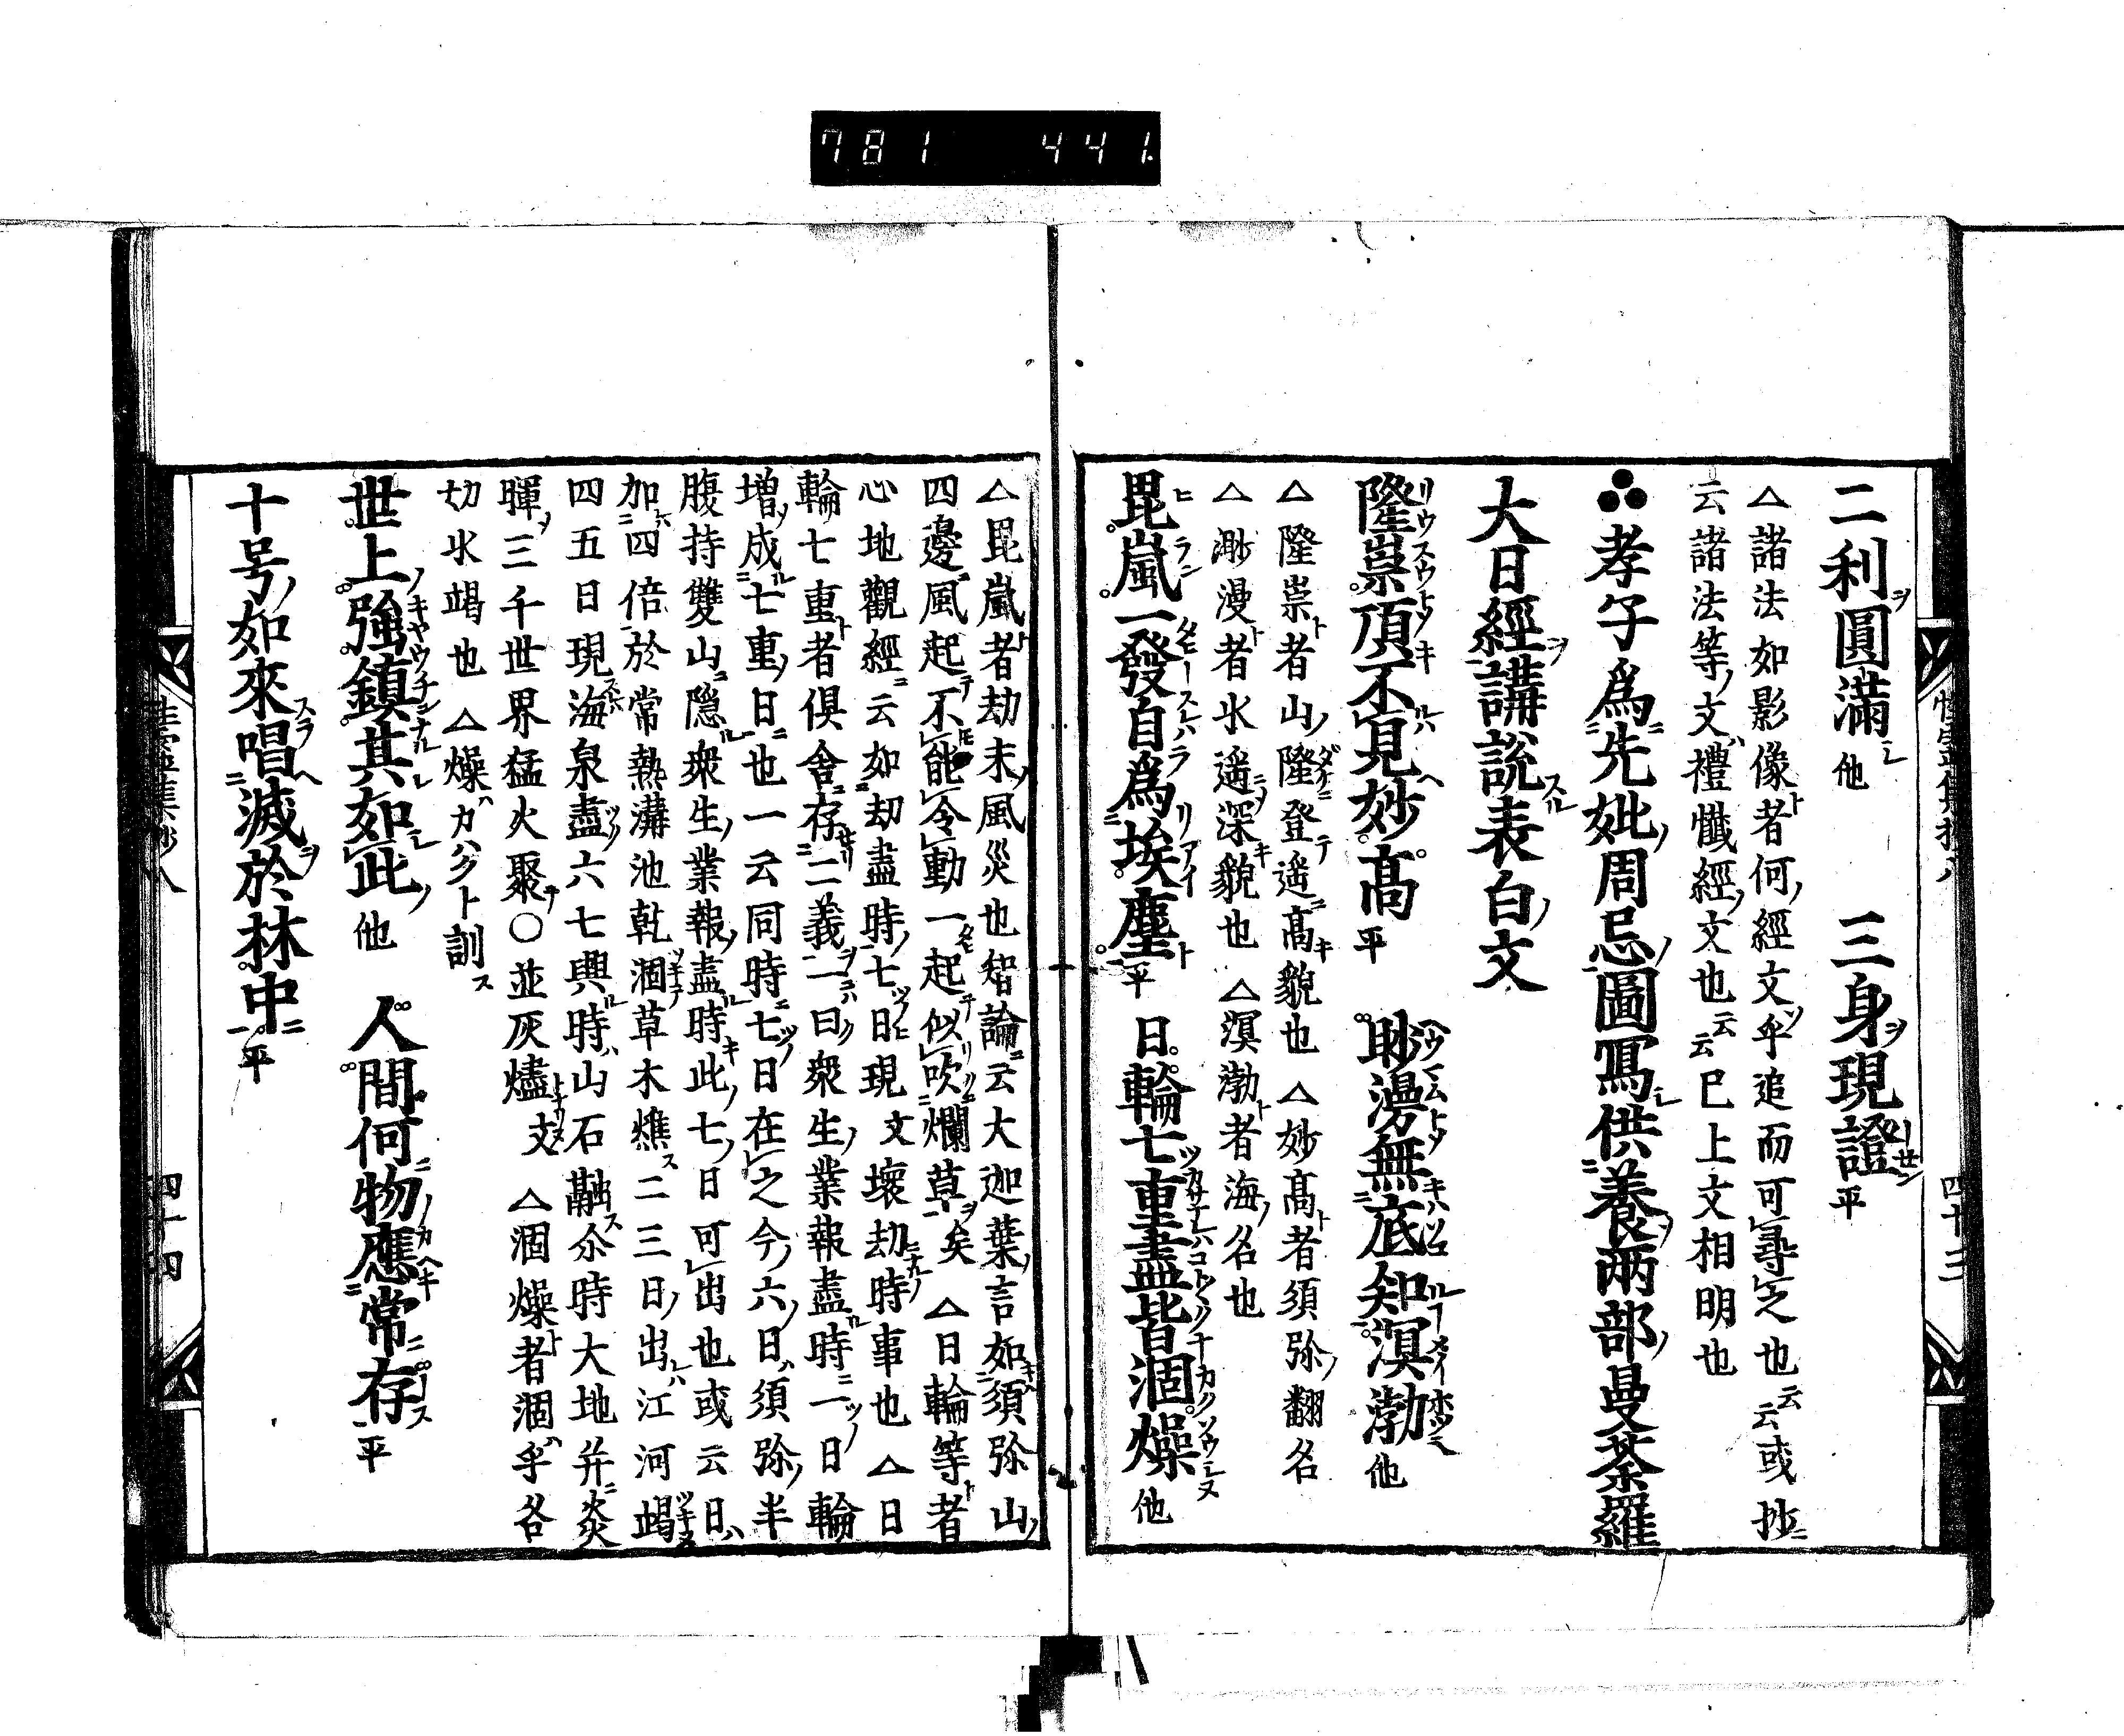 781 441
二利圓滿 他 三身現證 平
△諸法如影像者何經文乎追而可尋之也云云或抄
云諸法等文禮懺經文也云云已上文相明也
孝子爲先妣周忌圖寫供養兩部曼荼羅
大日經講説表白文
隆崇頂不見妙高 平 眇漫無底知溟渤 他
△隆崇者山隆登遥高貌也△妙高者須弥翻名
△渺漫者水遥深貌也△溟渤者海名也
毘嵐一發自爲埃塵 平 日輪七重盡皆涸燥 他
△毘嵐者劫末風災也智論云大迦葉言如須弥山
四邊風起不能令動一起似吹爛草矣△日輪等者
心地觀經云如劫盡時七日現文壞劫時事也△日
輪七重者倶舎存二義一曰衆生業報盡時一日輪
増成七重日也一云同時七日在之今六日須弥半
腹持雙山隠衆生業報盡時此七日可出也或云日
加四倍於常熱溝池乾涸草木燋二三日出江河竭
四五日現海泉盡六七興時山石融尒時大地并炎
暉三千世界猛火聚○並灰燼文△涸燥者涸乎各
切水竭也△燥カハクト訓ス
世上強鎮其如此 他 人間何物應常存 平
十号如來唱滅於林中 平
四十三
四十四